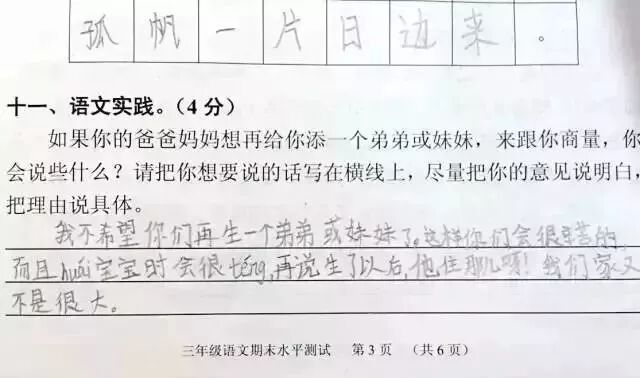 孤帆一片日边来。
十一、语文实践。（4 分）
如果你的爸爸妈妈想再给你添一个弟弟或妹妹，来跟你商量，你
会说些什么？请把你想要说的话写在横线上，尽量把你的意见说明白，
把理由说具体。
我不希望你们再生一个弟弟或妹妹了。这样你们会很辛苦的，
而且huái宝宝时会很téng，再说生了以后，他住那儿呀！我们家又
不是很大。
三年级语文期末水平测试 第 3 页 （共 6 页）